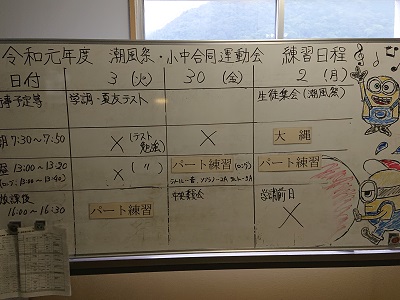 令和元年度 潮風祭・小中合同運動会 練習日程
日付 3(火) 30(金) 2(月)
予定等 学調・夏友テスト 生徒集会(潮風祭)
朝 7:30~7:50 ×(テスト勉強) × 大縄
昼 13:00~13:20 ×(〃) パート練習 パート練習
放課後 16:00~16:30 パート練習 学調前日 ×